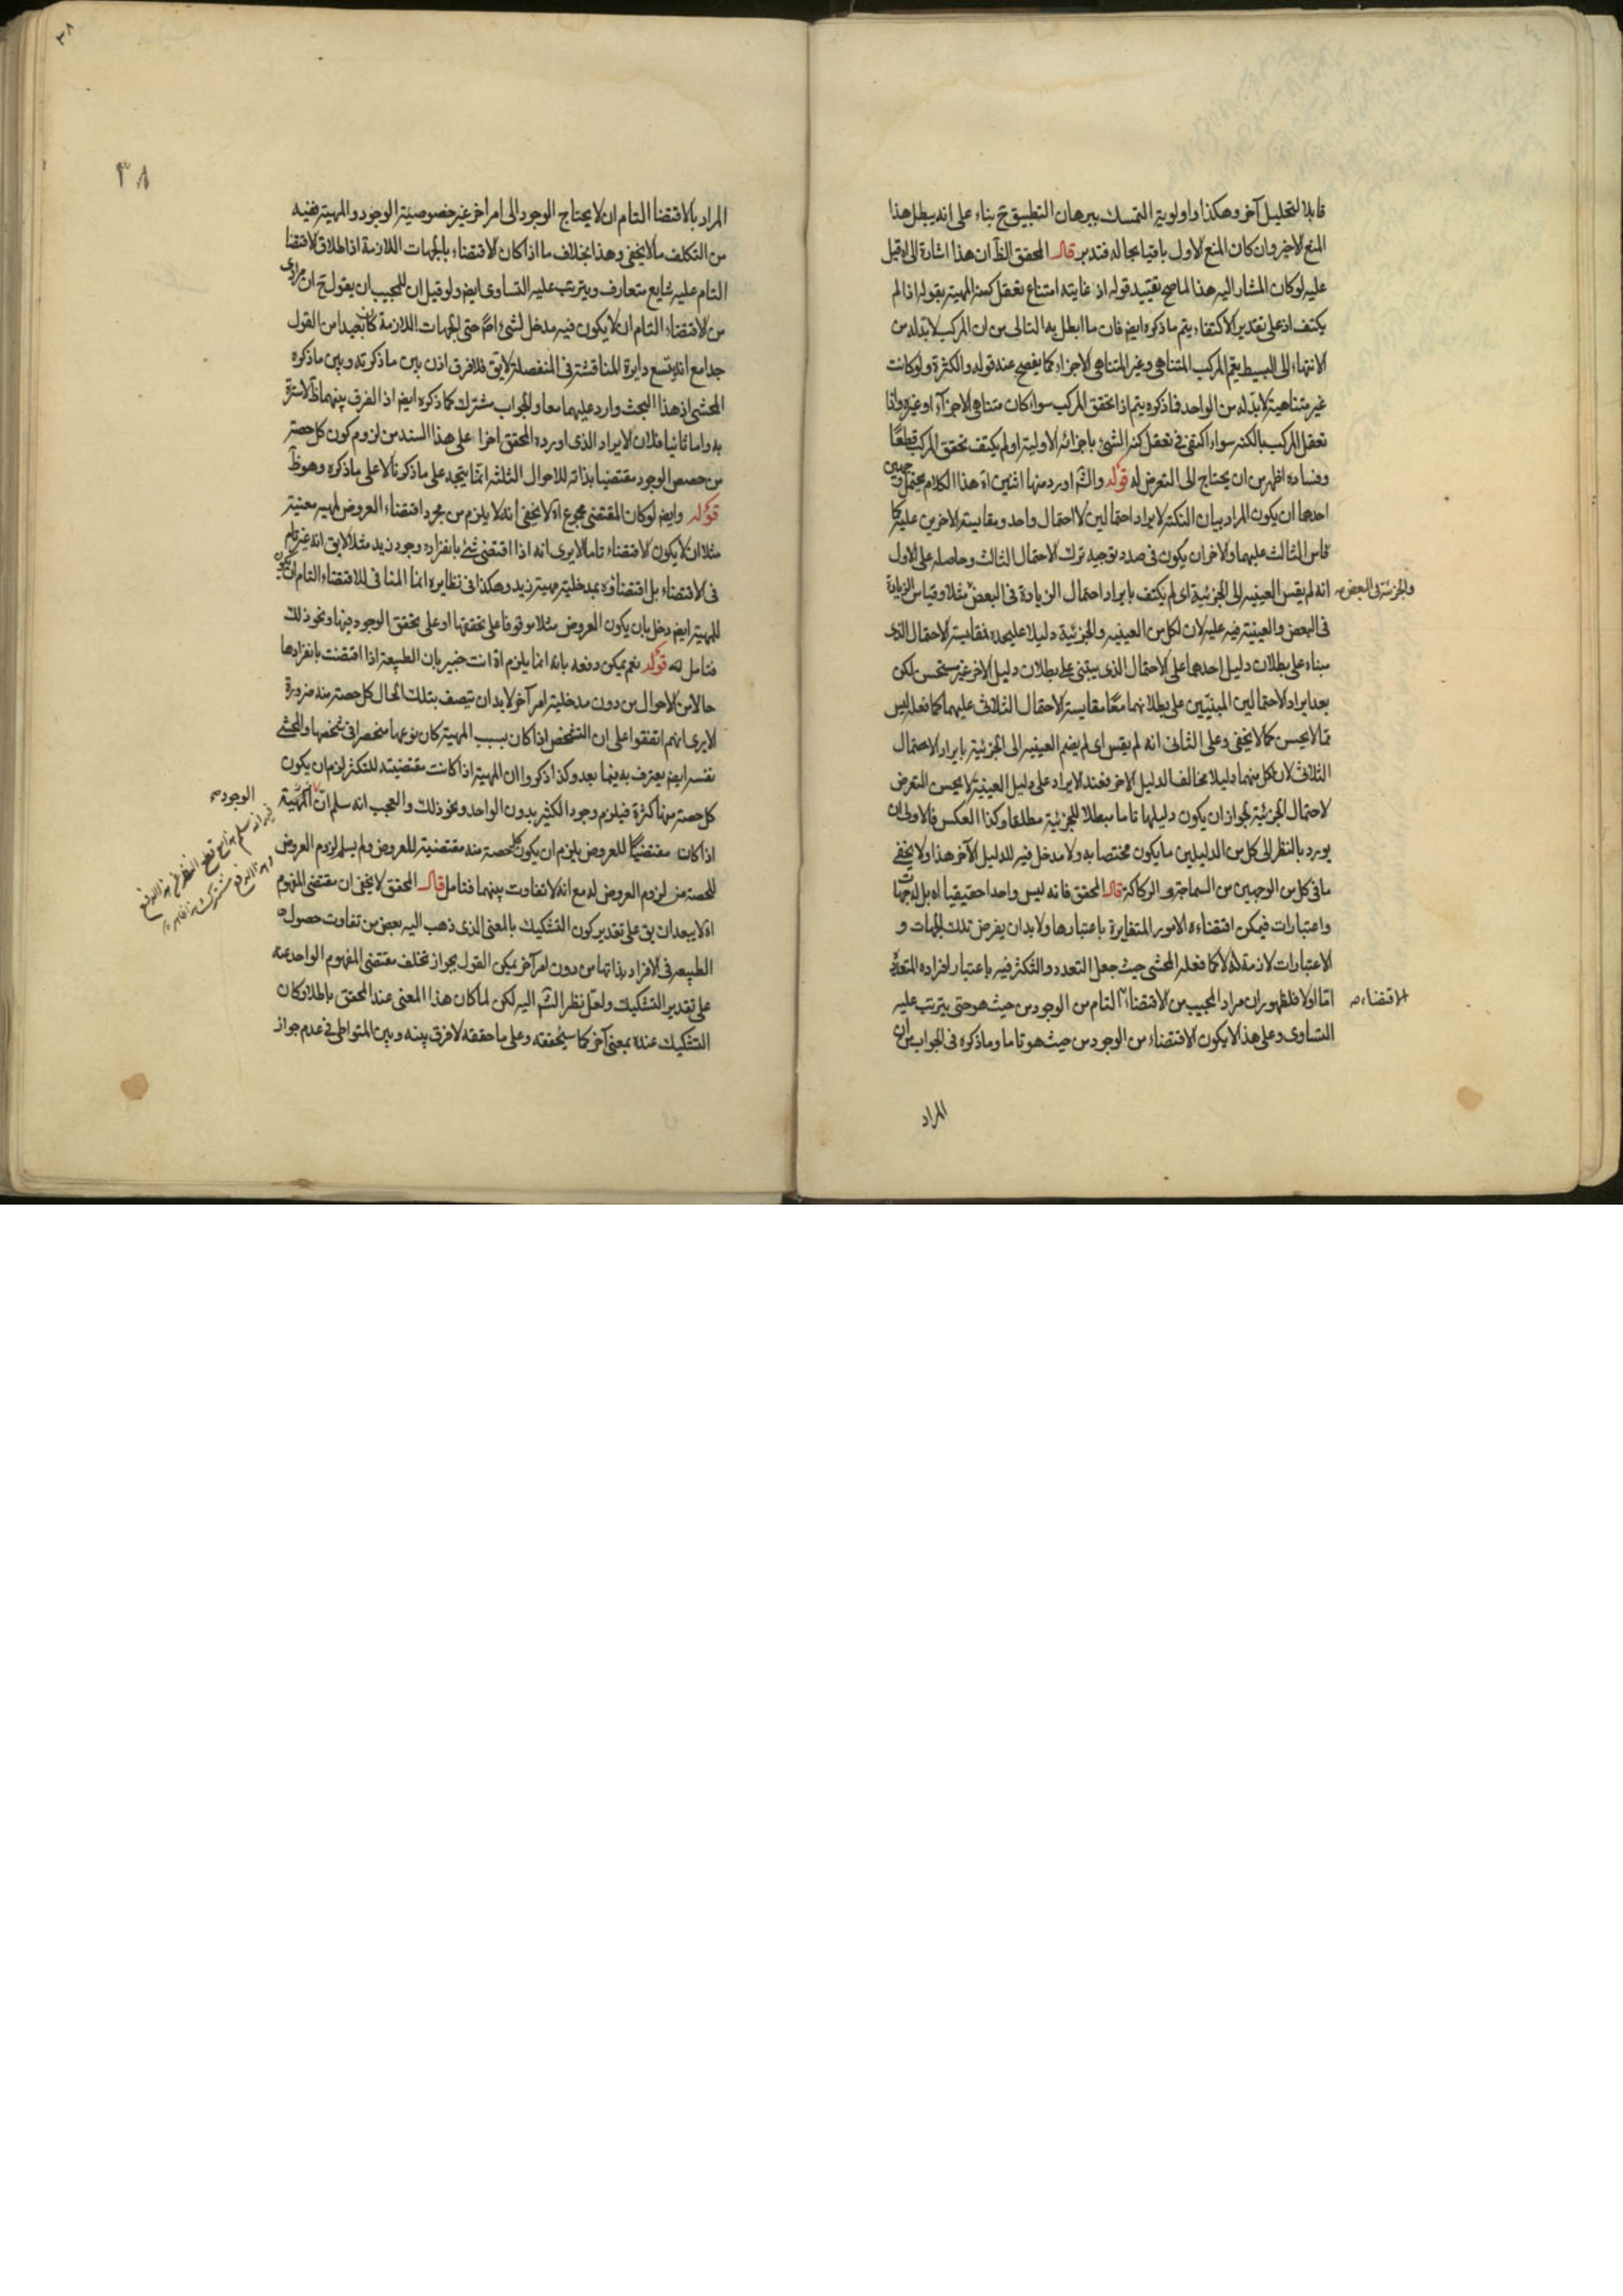 قابلا لتحليل آخر وهكذا واولوية التمسك ببرهان التطبيق ح بناء على انه يبطل هذا
المنع الاخير وان كان المنع الاول باقيا بحاله فتدبر قال المحقق الظ ان هذا اشارة الى ما قيل
عليه لو كان المشار اليه هذا لما صح تقييد قوله اذ غايته امتناع تعقل كنه المهية بقوله اذا لم
يكتف اذ على تقدير الاكتفاء يتم ما ذكره ايض فان ما ابطل به التالى من ان المركب لابد له من
الانتهاء الى البسيط يعم المركب المتناهى وغير المتناهى الاجزاء كما يفصح عنه قوله والكثرة ولو كانت
غير متناهية لابد له من الواحد فما ذكره يتم اذا تحقق المركب سواء كان متناهى الاجزاء او غيره واذا
تعقل المركب بالكنه سواء اكتفى فى تعقل كنه الشئ باجزائه الاولية او لم يكتف تحقق المركب قطعا
وفساده اظهر من ان يحتاج الى التعرض له قوله والشم اورد منها اثنين اه هذا الكلام يحتمل وجهين
احدهما ان يكون المراد بيان النكتة لايراد احتمالين لا احتمال واحد ومقايسة الاخرين عليه كما
قاس الثالث عليهما والاخر ان يكون فى صدد توجيه ترك الاحتمال الثالث وحاصله على الاول
انه لم يقس العينية الى الجزئية اى لم يكتف بايراد احتمال الزيادة فى البعض مثلا وقياس الزيادة
والجزئية فى البعض
فى البعض والعينية فيه عليه لان لكل من العينية والجزئية دليلا عليحده فمقايسة الاحتمال الذى
مبناه على بطلان دليل احدهما على الاحتمال الذى يبتنى على بطلان دليل الاخر غير مستحسن لكن
بعد ايراد الاحتمالين المبنيين على بطلانهما معا مقايسة الاحتمال الثلاث عليهما كما فعله ليس
مما لا يحسن كما لا يخفى وعلى الثانى انه لم يقس اى لم يضم العينية الى الجزئية بايراد الاحتمال
الثلاث لان لكل منهما دليلا مخالف الدليل الاخر فعند الايراد على دليل العينية لا يحسن التعرض
لاحتمال الجزئية لجواز ان يكون دليلها تاما مبطلا للجزئية مطلقا وكذا العكس فالاولى ان
يورد بالنظر الى كل من الدليلين ما يكون مختصا به ولا مدخل فيه للدليل الآخر هذا ولا يخفى
ما فى كل من الوجهين من السماجة والركاكة قال المحقق فانه ليس واحدا حقيقيا اه بل له جهات
واعتبارات فيمكن اقتضاءه الامور المتغايرة باعتبارها ولابد ان يفرض تلك الجهات و
الاعتبارات لازمة له لا كما فعله المحشى حيث جعل التعدد والتكثر فيه باعتبار افراده المتعددة
اما اولا فلظهور ان مراد المجيب من الاقتضاء التام من الوجود من حيث هو حتى يترتب عليه
الاقتضاء
التساوى وعلى هذا لا يكون الاقتضاء من الوجود من حيث هو تاما وما ذكره فى الجواب من ان
المراد
٣٨
٣٨
المراد بالاقتضا التام ان لا يحتاج الوجود الى امر اخر غير خصوصية الوجود والمهية ففيه
من التكلف ما لا يخفى وهذا بخلاف ما اذا كان الاقتضاء بالجهات اللازمة اذ اطلاق الاقتضا
التام عليه شايع متعارف ويترتب عليه التساوى ايض ولو قيل ان للمجيب ان يقول ح ان مرادى
من الاقتضاء التام ان لا يكون فيه مدخل لشئ اصلا حتى الجهات اللازمة كان بعيدا من القول
جدا مع انه يتسع دايرة المناقشة فى المنفصلة لا يق فلا فرق اذن بين ما ذكرته وبين ما ذكره
المحشى اذ هذا البحث وارد عليهما معا والجواب مشترك كما ذكره ايض اذ الفرق بينهما ظ لا سترة
به واما ثانيا فلان الايراد الذى اورده المحقق اخرا على هذا السند من لزوم كون كل حصة
من حصص الوجود مقتضيا بذاته للاحوال الثلثة انما يتجه على ما ذكرنا لا على ما ذكره وهو ظ
قوله وايض لو كان المقتضى مجموع اه لا يخفى انه لا يلزم من مجرد اقتضاء العروض لمهية معنية
مثلا ان لا يكون الاقتضاء تاما الا يرى انه اذا اقتضى شئ بانفراده وجود زيد مثلا لا يق انه غير تام
فى الاقتضاء بل اقتضاؤه بمدخلية مهية زيد وهكذا فى نظايره انما المنافى للاقتضاء التام ان يكون
للمهية ايض دخل بان يكون العروض مثلا موقوفا على تحققها او على تحقق الوجود فيها ونحو ذلك
فتامل قوله نعم يمكن دفعه بانه انما يلزم اه انت خبير بان الطبيعة اذا اقتضت بانفرادها
حالا من الاحوال من دون مدخلية امر آخر لابد ان يتصف بتلك الحال كل حصة منه ضرورة
الا يرى انهم اتفقوا على ان التشخص اذا كان بسبب المهية كان نوعها منحصرا فى شخصها والمحشى
نفسه ايض يعترف به فيما بعد وكذا ذكروا ان المهية اذا كانت مقتضية للتكثر لزم ان يكون
كل حصة منها كثرة فيلزم وجود الكثير بدون الواحد ونحو ذلك والعجب انه سلم ان المهية
اذا كان مقتضيا للعروض يلزم ان يكون كل حصة منه مقتضية للعروض ولم يسلم لزوم العروض
للحصة من لزوم العروض له مع انه لا تفاوت بينهما فتامل قال المحقق لا يخفى ان مقتضى المفهوم
اه لا يبعد ان يق على تقدير كون التشكيك بالمعنى الذى ذهب اليه بعض من تفاوت حصول
الطبيعة فى الافراد بذاتها من دون امر آخر يمكن القول بجواز تخلف مقتضى المفهوم الواحد عنه
على تقدير التشكيك ولعل نظر الشم اليه لكن لما كان هذا المعنى عند المحقق باطلا وكان
التشكيك عنده بمعنى آخر كما سيحققه وعلى ما حققه لا فرق بينه وبين المتواطى فى عدم جواز
الوجود